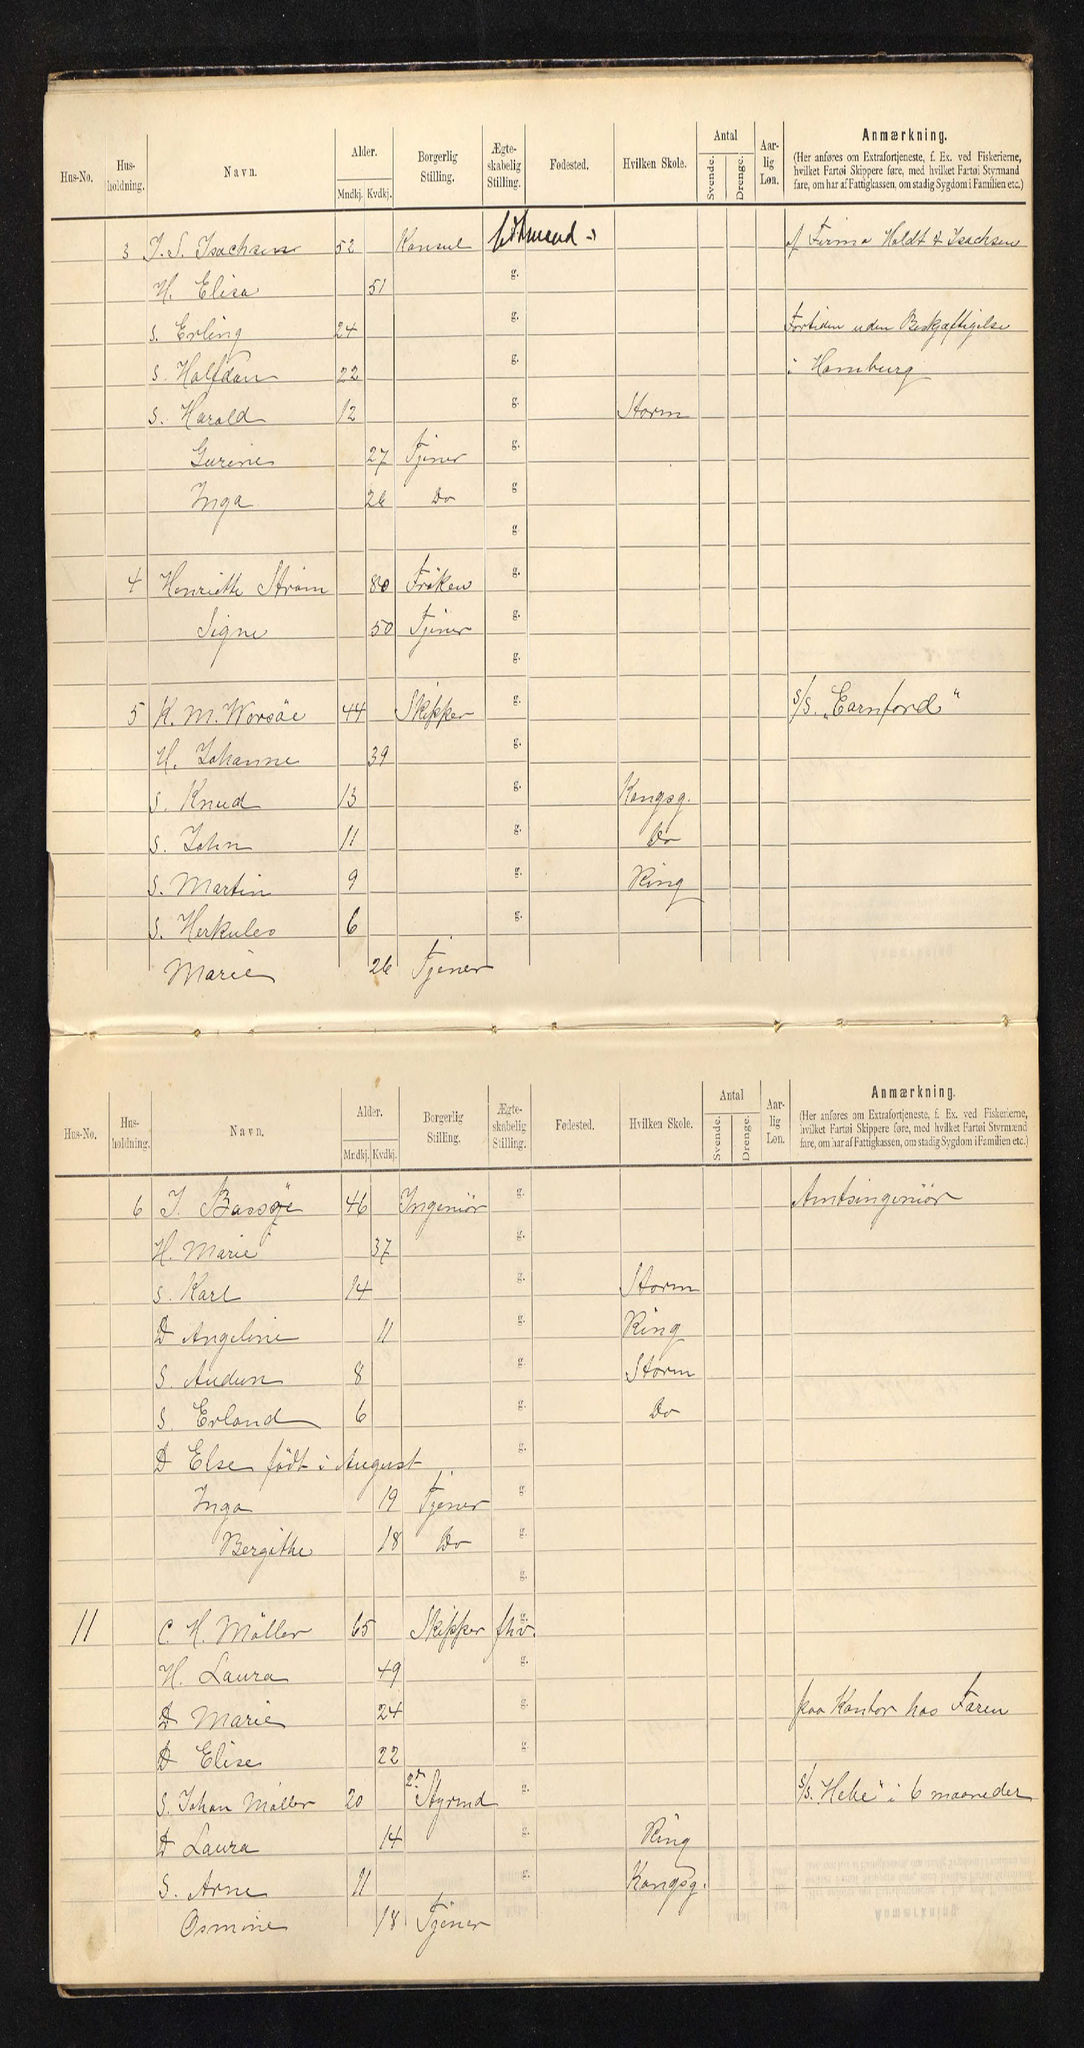 Hus-No. Hus-holdning. Navn. Alder. Mndkj. Kvdkj. Borgerlig Stilling. Ægte-skabelig Stilling. Fødested. Hvilken Skole. Antal Svende. Drenge. Aar-lig Løn. Anmærkning.
(Her anføres om Extrafortjeneste, f. Ex. ved Fiskerierne,
hvilket Fartøi Skippere føre, med hvilket Fartøi Styrmænd
fare, om har af Fattigkassen, om stadig Sygdom i Familien etc.)
3 J. S. Isachsen 52 Konsul af Firma Holdt & Isachsen
H. Elisa 51 g.
S. Erling 24 g. Fortiden uden Beskjæftigelse
S. Halfdan 22 g. i Hamburg
S. Harald 12 g. Storm
Gurine 27 Tjener g.
Inga 26 Do g
g
4 Henriette Strøm 80 Fröken g.
Signe 50 Tjener g.
g.
5 K. M. Worsöe 44 Skipper g. S/S. „Earnford"
H. Johanne 39 g.
S. Knud 13 g. Kongsg.
S. John 11 g. Do
S. Martin 9 g. Ring
S. Herkules 6 g.
Marie 26 Tjener
Hus-No. Hus-holdning. Navn. Alder. Mndkj. Kvdkj. Borgerlig Stilling. Ægte-skabelig Stilling. Fødested. Hvilken Skole. Antal Svende. Drenge. Aar-lig Løn. Anmærkning.
(Her anføres om Extrafortjeneste, f. Ex. ved Fiskerierne,
hvilket Fartøi Skippere føre, med hvilket Fartøi Styrmænd
fare, om har af Fattigkassen, om stadig Sygdom i Familien etc.)
6 J. Bassöe 46 Ingeniör g. Amtsingeniör
H. Marie 37 g.
S. Karl 14 g. Storm
D Angeline 11 g. Ring
S. Audun 8 g. Storm
S. Erland 6 g. Do
D Else födt i August g.
Inga 19 Tjener g
Bergithe 18 Do g.
g.
11 C. H. Möller 65 Skipper fhv. g.
H. Laura 49 g.
D Marie 24 g. paa Kontor hos Faren
D Elise 22 g.
S. Johan Möller 20 2n Styrmd g. S/S. „Hebe" i 6 maaneder
D Laura 14 g. Ring
S. Arne 11 g. Kongsg.
Osmine 18 Tjener